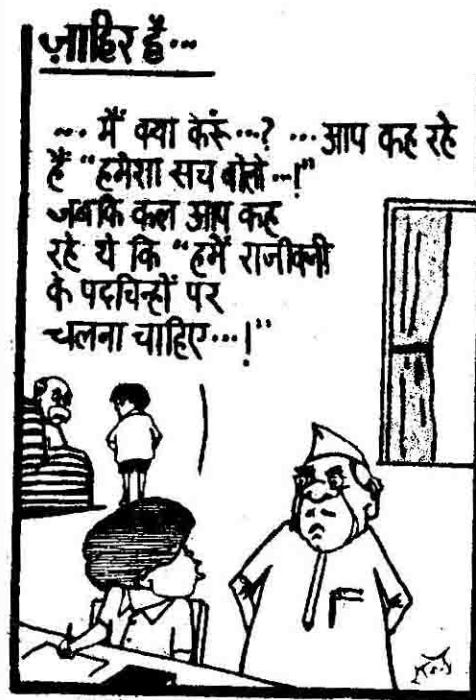 ज़ाहिर है...
... मैं क्या करूं...? ...आप कह रहे
हैं "हमेशा सच बोलो...!"
जबकि कल आप कह
रहे थे कि "हमें राजीवजी
के पदचिन्हों पर
चलना चाहिए...!"